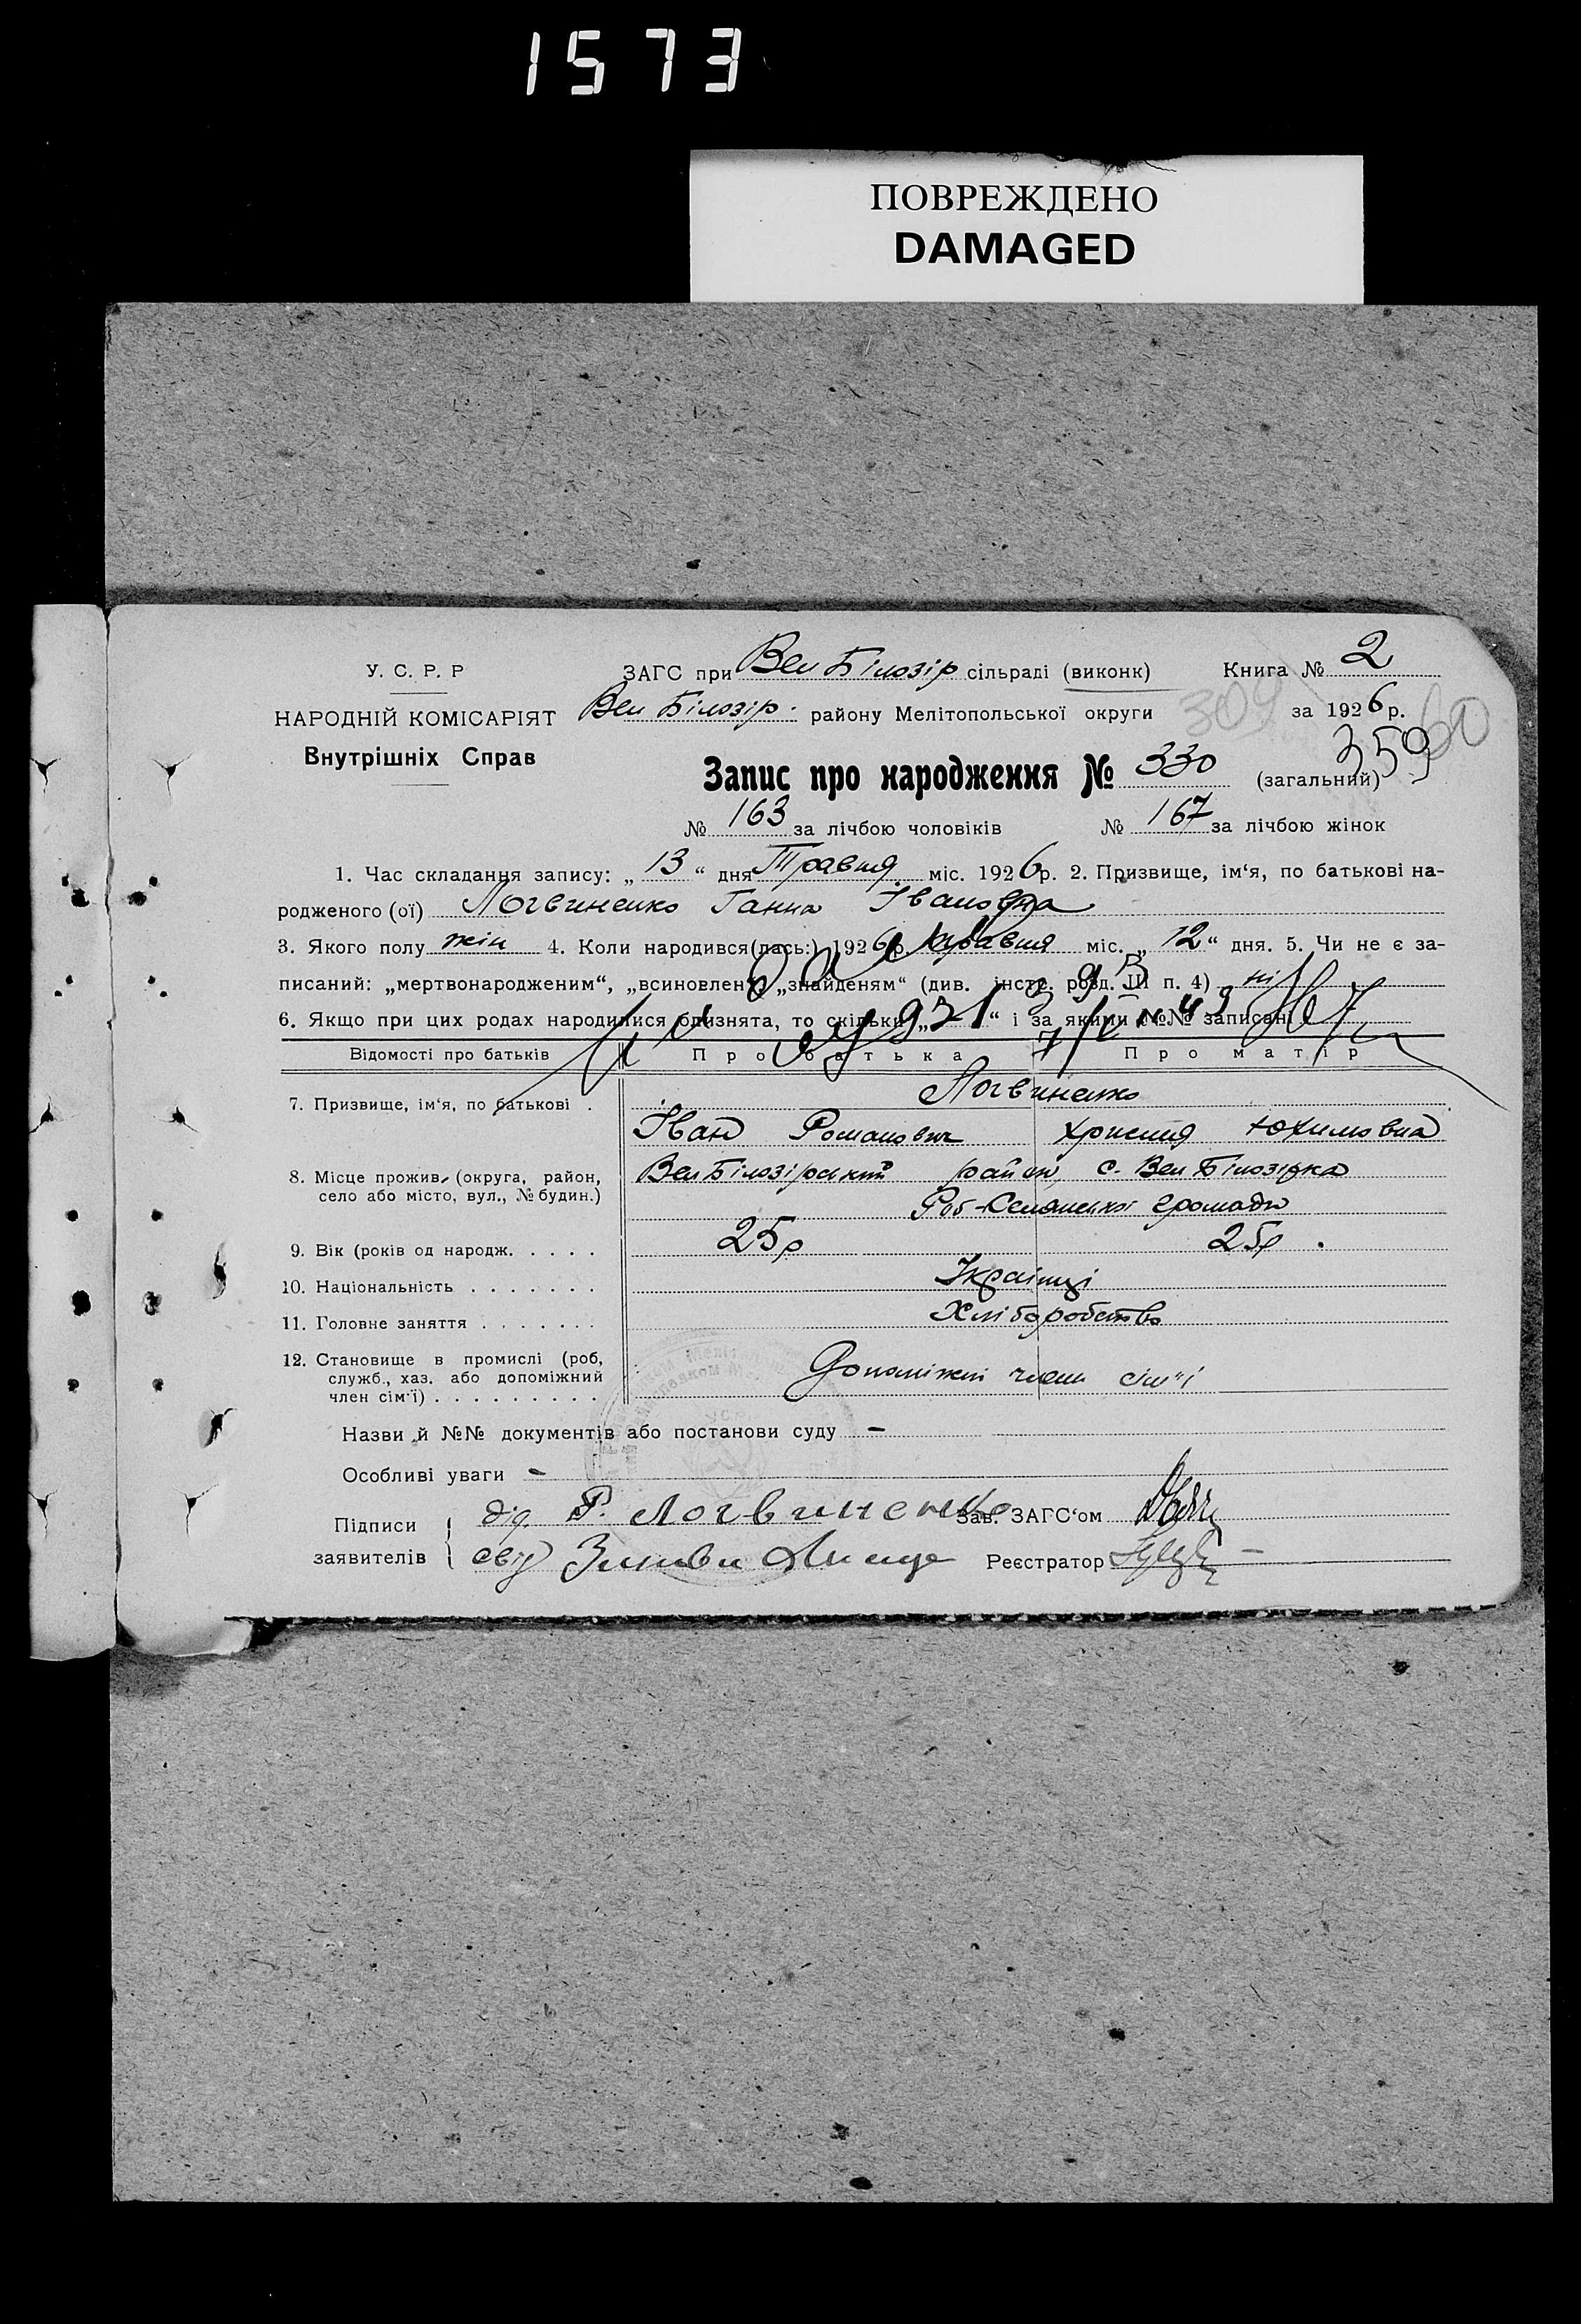 1573
ПОВРЕЖДЕНО
DAMAGED
У. С. Р. Р
НАРОДНІЙ КОМІСАРІЯТ
Внутрішніх Справ
ЗАГС при Вел Білозір сільраді (виконк) Книга № 2
Вел Білозір. району Мелітопольської округи 309 за 1926 р. 60
359
Запис про народження № 330 (загальний)
№ 163 за лічбою чоловіків № 167 за лічбою жінок
1. Час складання запису: „ 13 “ дня Травня міс. 1926 р. 2. Призвище, ім‘я, по батькові на-
родженого (ої) Логвиненко Ганна Івановна
3. Якого полу жін 4. Коли народився(лась:) 1926 р. травня міс. „ 12 “ дня. 5. Чи не є за-
писаний: „мертвонародженим“, „всиновлен“, „знайденям“ (див. інстр. розд. III п. 4) ні
6. Якщо при цих родах народилися близнята, то скільки „ “ і за якими №№ записані
Відомості про батьків Про батька Про матір
7. Призвище, ім‘я, по батькові . Логвиненко
Іван Романович Христя Юхимовна
8. Місце прожив. (округа, район, село або місто, вул., № будин.) Вел Білозірський район, с. Вел Білозірка
Роб-Селянської громади
9. Вік (років од народж. . . . . 25 р 25 р .
10. Національність . . . . . . . Українці
11. Головне заняття . . . . . . . Хліборобство
12. Становище в промислі (роб, служб., хаз. або допоміжний член сім‘ї) . . . . . . . . . Допоміжні члени сім"ї
Назви й №№ документів або постанови суду –
Особливі уваги –
Підписи заявителів { дід. Р. Логвиненко Зав. ЗАГС‘ом
свід Реєстратор